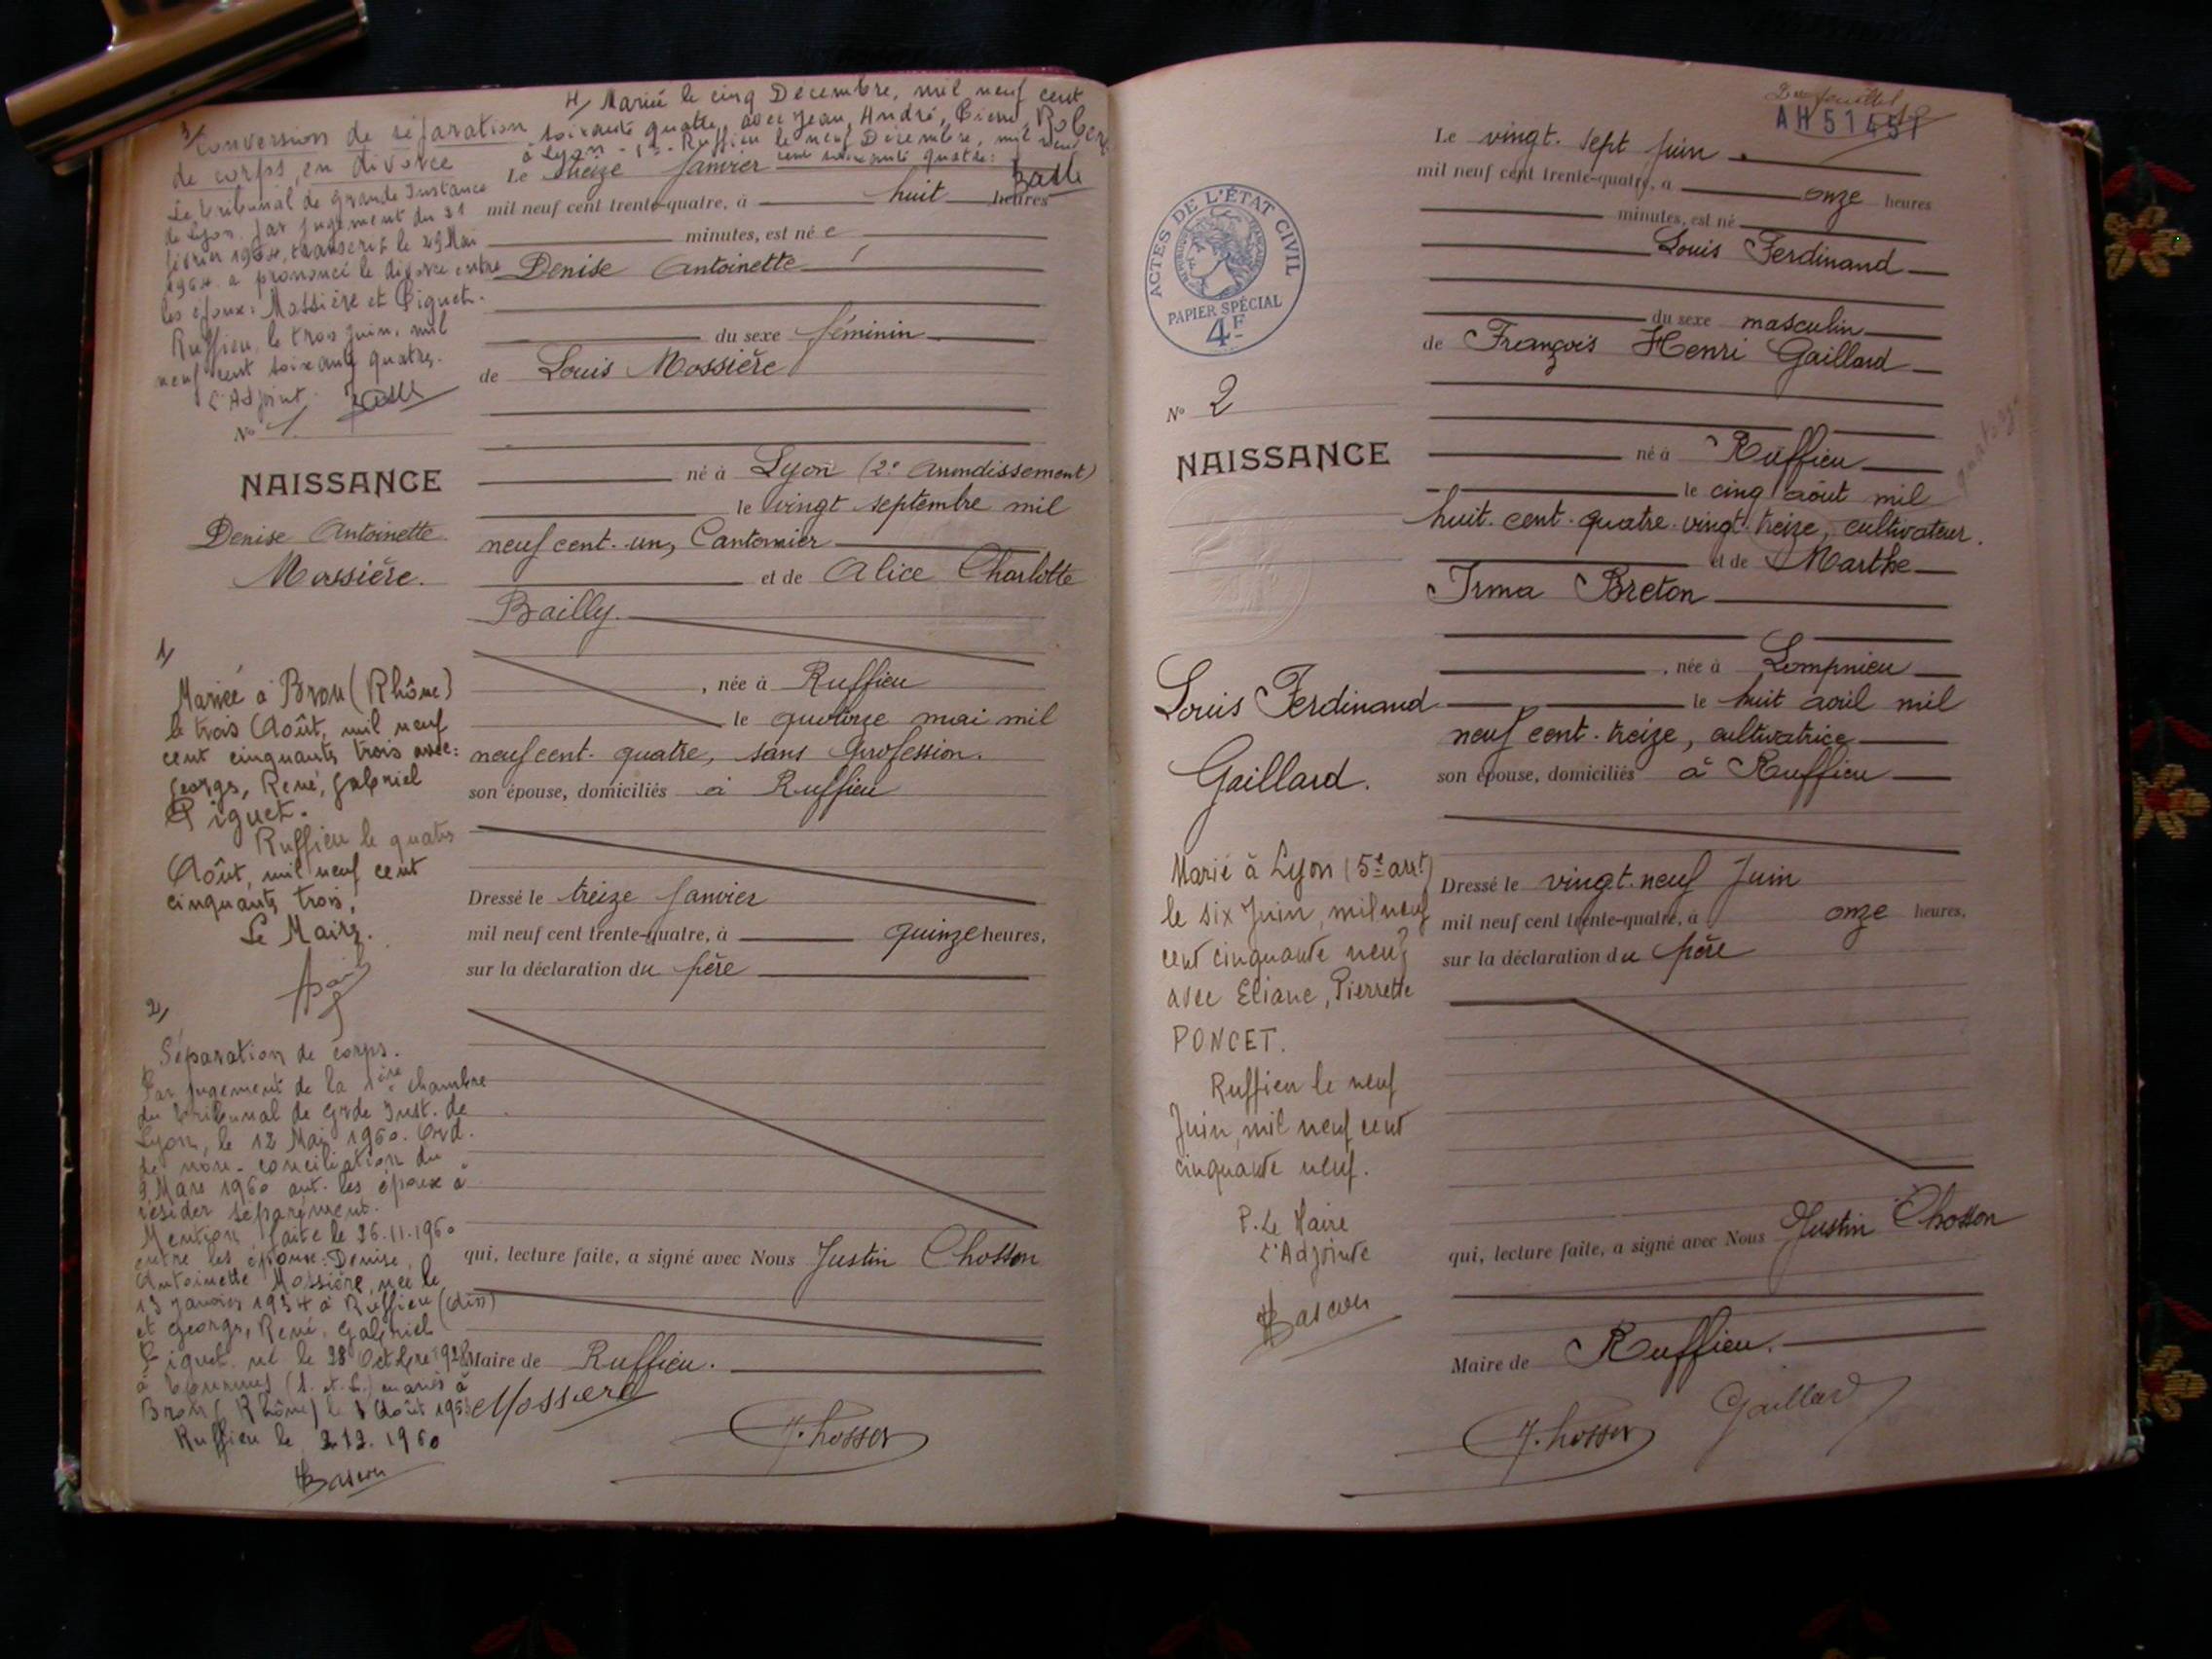 3/ Conversion de séparation
de corps, en divorce
Le Tribunal de Grande Instance
de Lyon, par jugement du
février 1964, transcrit le 29 Mai
1964 a prononcé le divorce entre
les époux: Mossière et Piguet.
Ruffieu, le trois juin, mil
neuf cent soixante quatre.
L'Adjoint.
4/ Mariée le cinq Décembre, mil neuf cent
soixante quatre, avec Jean, André, Pierre, Robert
à Lyon - Ruffieu le neuf Décembre, mil neuf
cent soixante quatre:
N° 1.
NAISSANCE
Denise Antoinette
Mossière.
1/
Mariée à Bron (Rhône)
le trois Août, mil neuf
cent cinquante trois avec:
Georgs, René, Gabriel
Piguet.
Ruffieu le quatre
Août, mil neuf cent
cinquante trois,
Le Maire.
2/
Séparation de corps.
Par jugement de la 1ère chambre
du Tribunal de Grde Inst. de
Lyon, le 12 Mai 1960. Ord.
de non-conciliation du
9 Mars 1960 aut. les époux à
résider séparément.
Mention faite le 26.11.1960
entre les époux: Denise,
Antoinette Mossière, née le
13 Janvier 1934 à Ruffieu (Ain)
et Georgs, René, Gabriel
Piguet né le 28 Octobre 1928
à Tournus (S. et L.) mariés à
Bron (Rhône) le 3 Août 1953
Ruffieu le 2.12.1960
Le treize Janvier
mil neuf cent trente-quatre, à huit heures
minutes, est né e
Denise Antoinette
du sexe féminin
de Louis Mossière
né à Lyon (2e Arrondissement)
le vingt septembre mil
neuf cent-un, Cantonnier
et de Alice Charlotte
Bailly.
, née à Ruffieu
le quatorze mai mil
neuf cent-quatre, sans profession.
son épouse, domiciliés à Ruffieu
Dressé le treize Janvier
mil neuf cent trente-quatre, à quinze heures,
sur la déclaration du père
qui, lecture faite, a signé avec Nous Justin Chosson
Maire de Ruffieu.
Mossière
J. Chosson
2e feuillet
AH51451
ACTES DE L'ÉTAT CIVIL
RÉPUBLIQUE FRANÇAISE
PAPIER SPÉCIAL
4F
N° 2
NAISSANCE
Louis Ferdinand
Gaillard.
Marié à Lyon (5e arrt)
le six Juin, mil neuf
cent cinquante neuf
avec Eliane, Pierrette
PONCET.
Ruffieu le neuf
Juin, mil neuf cent
cinquante neuf.
P. Le Maire
L'Adjointe
Le vingt-sept Juin
mil neuf cent trente-quatre, à onze heures
minutes, est né
Louis Ferdinand
du sexe masculin
de François Henri Gaillard
né à Ruffieu
le cinq août mil
huit-cent-quatre-vingt-treize, cultivateur.
et de Marthe
Irma Breton
, née à Lompnieu
le huit avril mil
neuf cent-treize, cultivatrice
son épouse, domiciliés à Ruffieu
Dressé le vingt-neuf Juin
mil neuf cent trente-quatre, à onze heures,
sur la déclaration du père
qui, lecture faite, a signé avec Nous Justin Chosson
Maire de Ruffieu.
J. Chosson
Gaillard